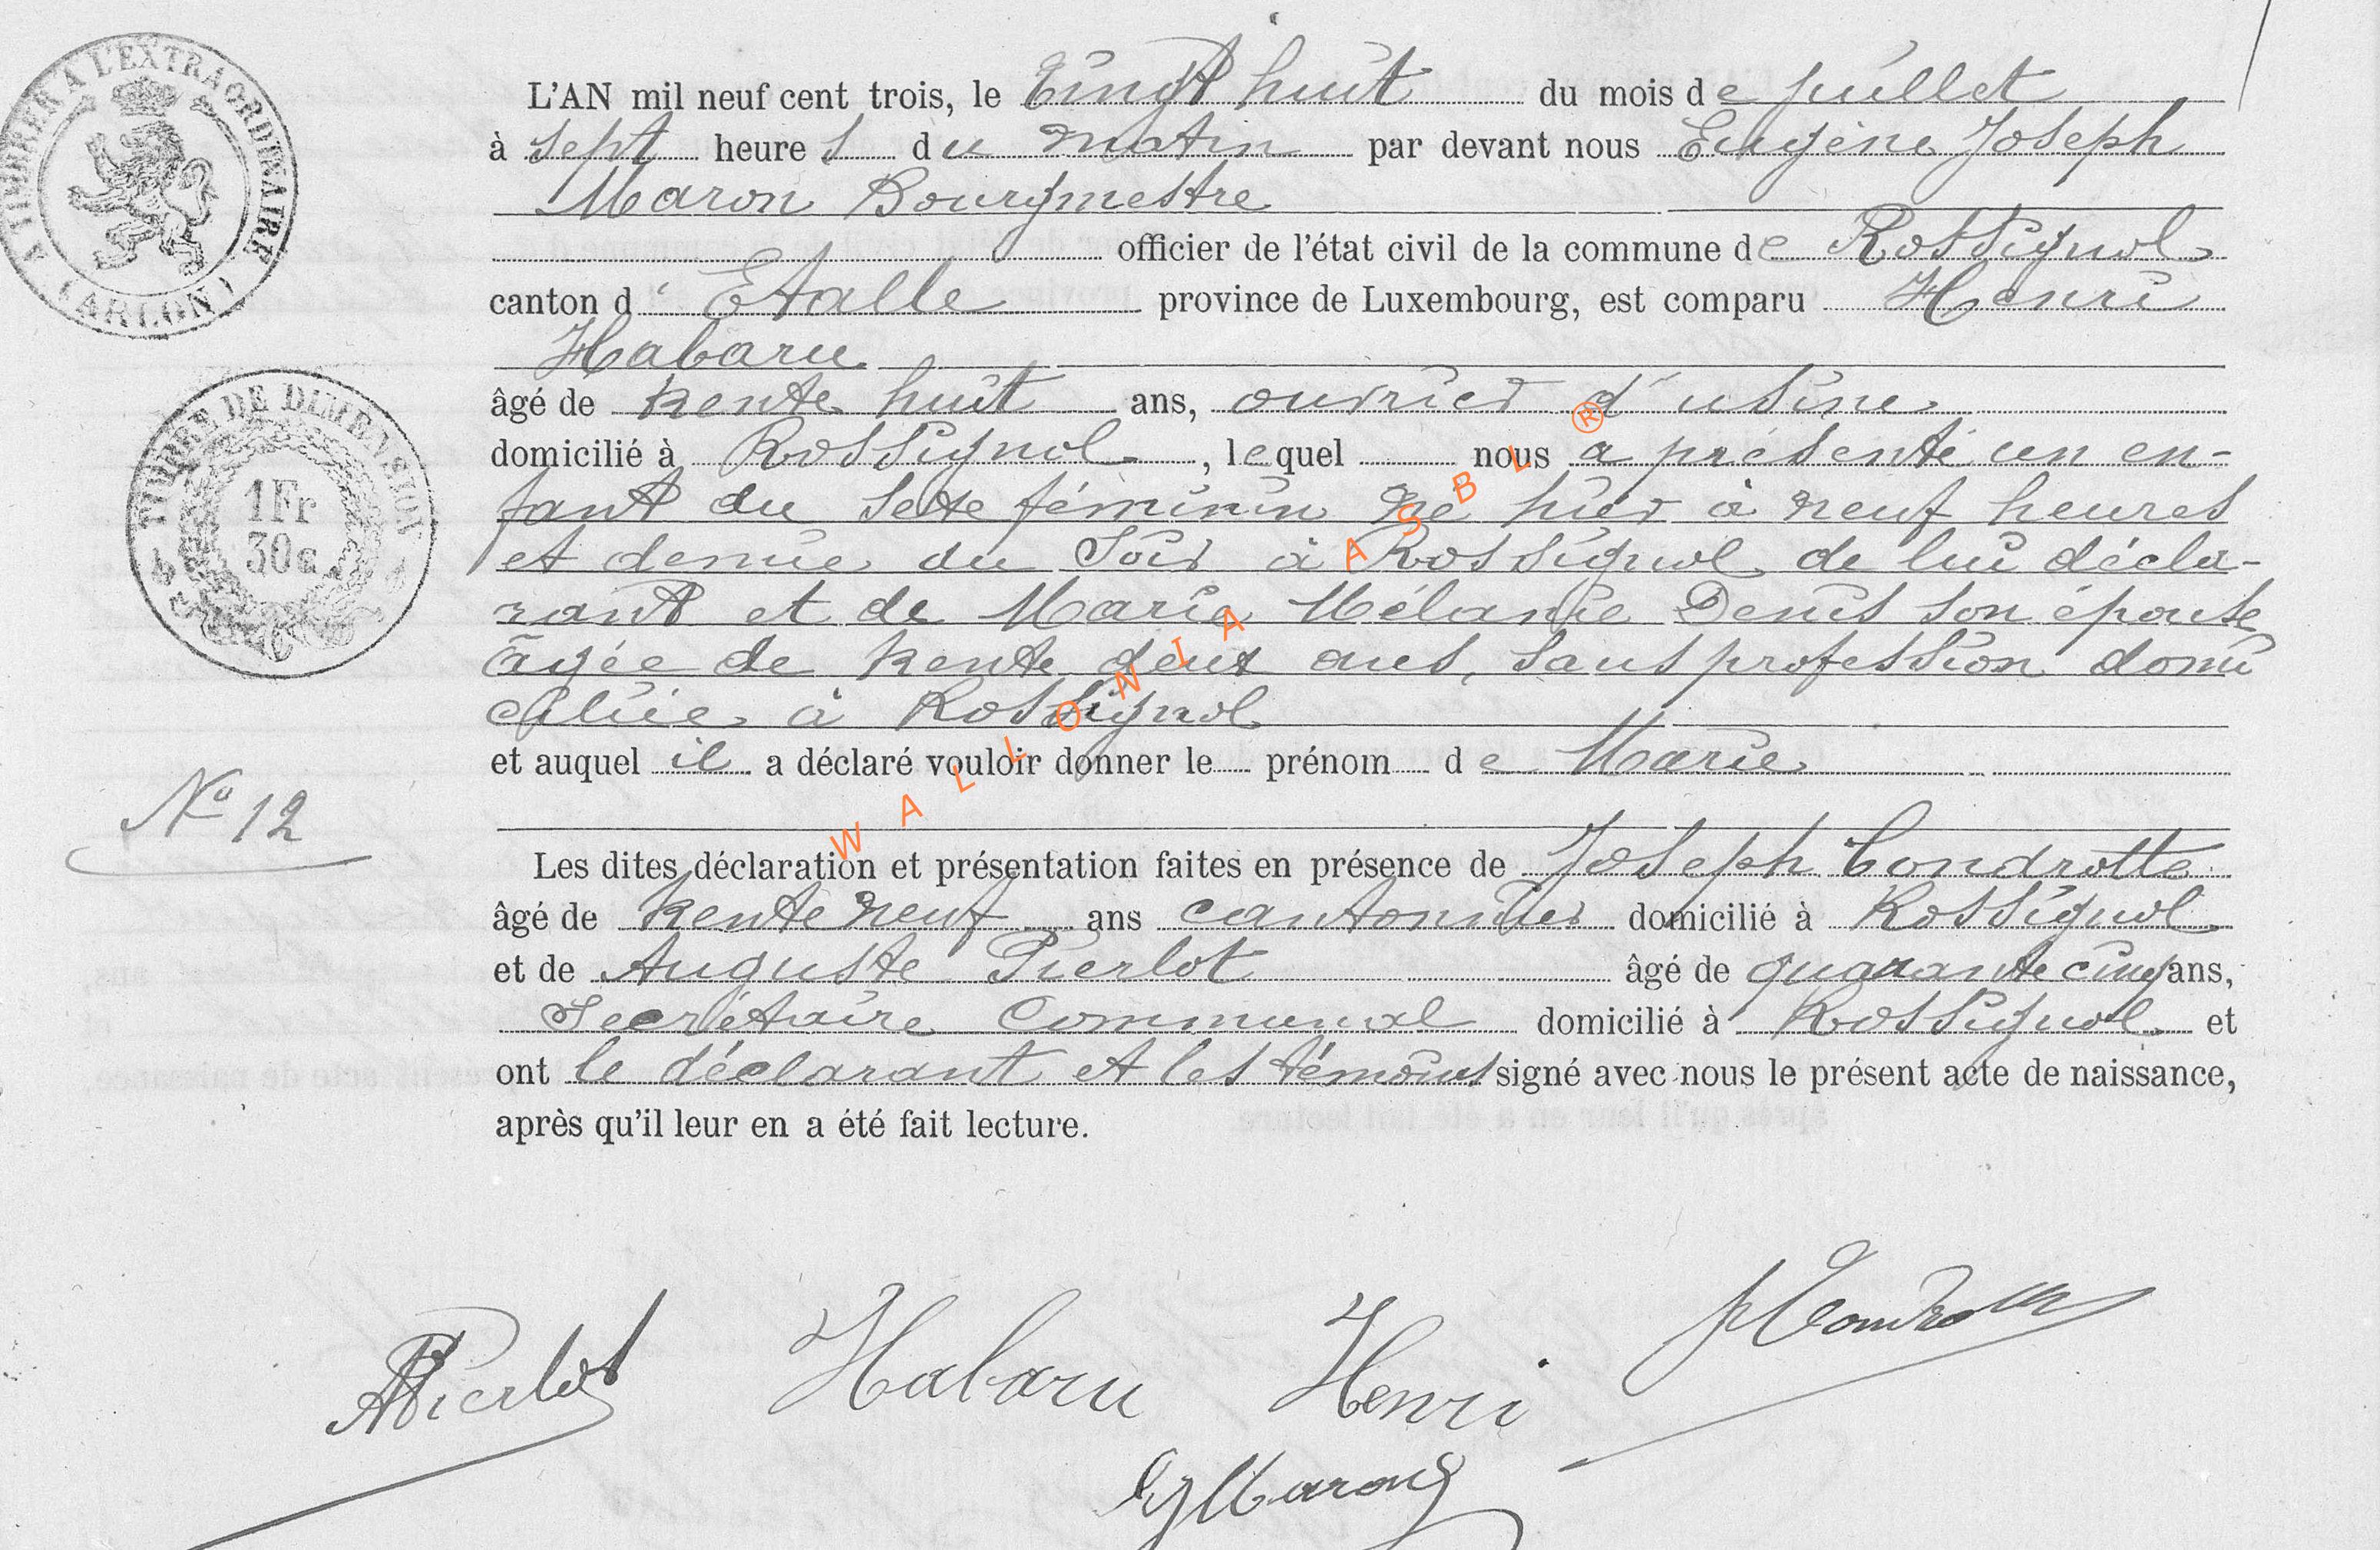 A TIMBRER A L'EXTRAORDINAIRE
(ARLON)
TIMBRE DE DIMENSION
1Fr
30c
L'AN mil neuf cent trois, le Vingt huit du mois de juillet
à sept heures du matin par devant nous Eugène Joseph
Maron Bourgmestre
officier de l'état civil de la commune de Rossignol
canton d'Etalle province de Luxembourg, est comparu Henri
Habaru
âgé de trente huit ans, ouvrier d'usine
domicilié à Rossignol, lequel nous a présenté un en-
fant du sexe féminin né hier à neuf heures
et demie du soir à Rossignol de lui décla-
rant et de Marie Mélanie Denis son épouse
âgée de trente deux ans, sans profession domi
ciliée à Rossignol
et auquel il a déclaré vouloir donner le prénom de Marie
No 12
Les dites déclaration et présentation faites en présence de Joseph Condrotte
âgé de trente neuf ans cantonnier domicilié à Rossignol
et de Auguste Pierlot âgé de quarante cinq ans,
Secrétaire Communal domicilié à Rossignol et
ont le déclarant et les témoins signé avec nous le présent acte de naissance,
après qu'il leur en a été fait lecture.
APierlot Habaru Henri JCondrotte
EJMaron
WALLONIA ASBL ®